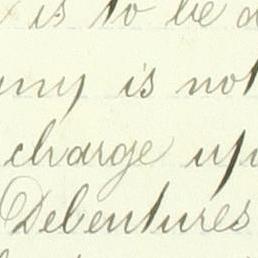 is to be
is not
charge
Debentures